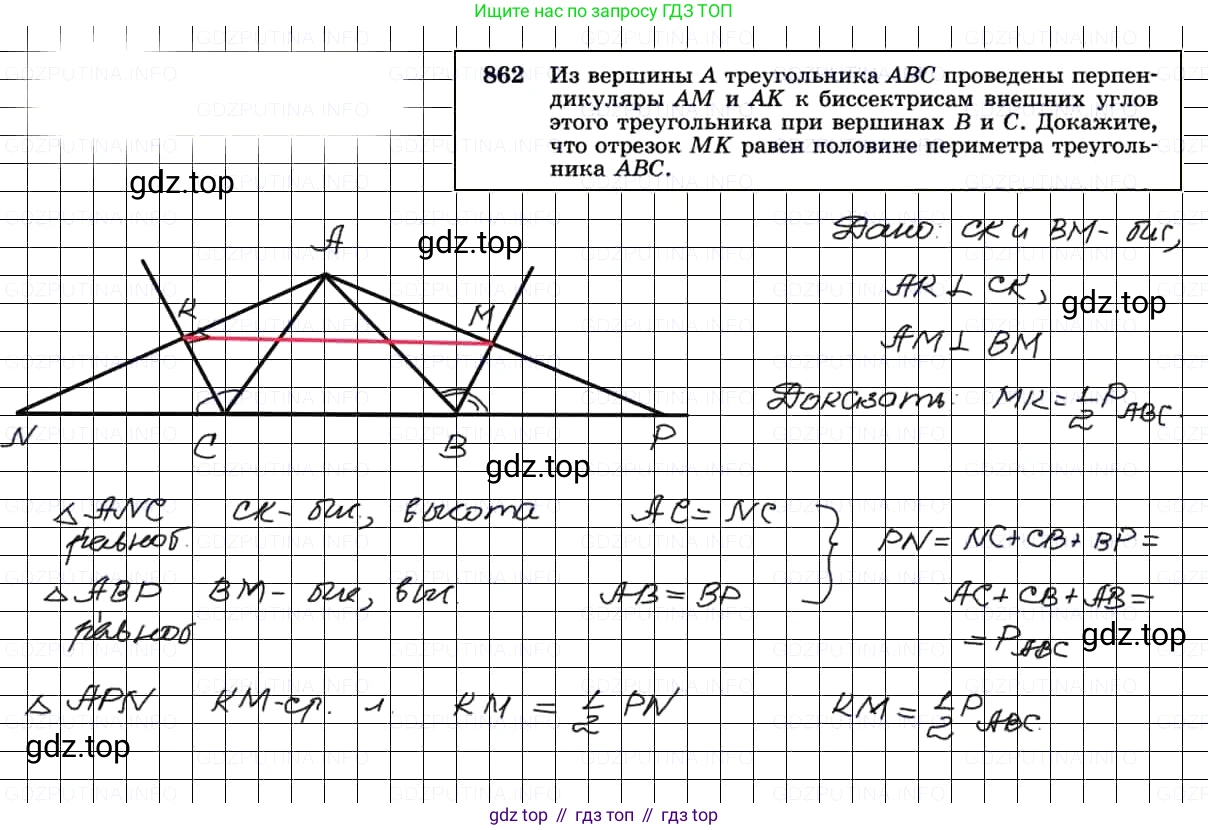 Ищите нас по запросу ГДЗ ТОП
862 Из вершины A треугольника ABC проведены перпен-
дикуляры AM и AK к биссектрисам внешних углов
этого треугольника при вершинах B и C. Докажите,
что отрезок MK равен половине периметра треуголь-
ника ABC.
gdz.top
A
gdz.top
Дано: CK и BM - бис,
K
M
AK ⊥ CK,
gdz.top
AM ⊥ BM
Доказать: MK = 1/2 P ABC.
N C B P
gdz.top
△ ANC CK - бис., высота AC = NC
равноб.
PN = NC + CB + BP =
△ ABP BM - бис, выс. AB = BP
AC + CB + AB =
равноб
= P ABC gdz.top
△ APN KM - ср. л. KM = 1/2 PN KM = 1/2 P ABC.
gdz.top
gdz top // гдз топ // gdz top
GDZPUTINA.INFO